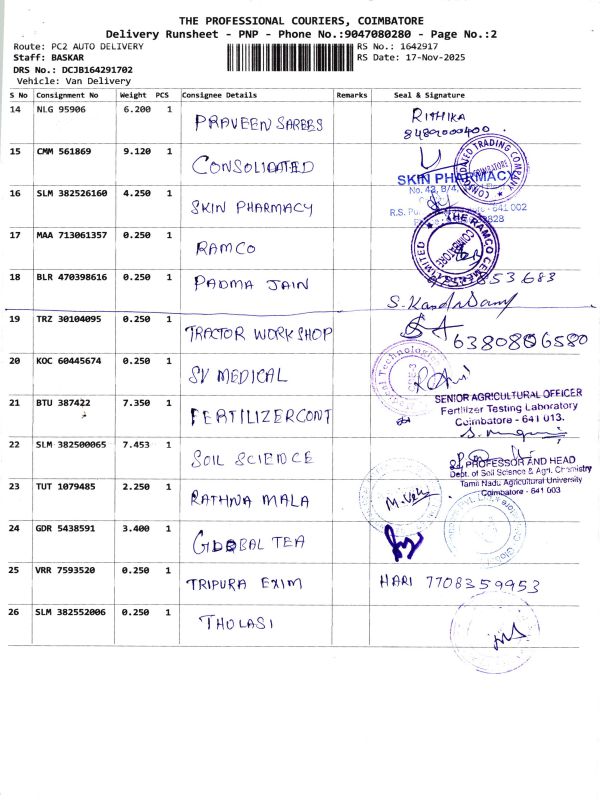 THE PROFESSIONAL COURIERS, COIMBATORE
Delivery Runsheet - PNP - Phone No.:9047080280 - Page No.:2
Route: PC2 AUTO DELIVERY
RS No.: 1642917
Staff: BASKAR
RS Date: 17-Nov-2025
DRS No.: DCJB164291702
Vehicle: Van Delivery
S No Consignment No Weight PCS Consignee Details Remarks Seal & Signature
14 NLG 95906 6.200 1 PRAVEEN SAREES RITHIKA
15 CMM 561869 9.120 1 CONSOLIDATED
TRADING COMPANY
COIMBATORE
16 SLM 382526160 4.250 1 SKIN PHARMACY SKIN PHARMACY
17 MAA 713061357 0.250 1 RAMCO
THE RAMCO CEMENTS LIMITED
COIMBATORE
18 BLR 470398616 0.250 1 PADMA JAIN
19 TRZ 30104095 0.250 1 TRACTOR WORKSHOP 6380806580
20 KOC 60445674 0.250 1 SV MEDICAL
21 BTU 387422 7.350 1 FERTILIZERCONT
SENIOR AGRICULTURAL OFFICER
Fertilizer Testing Laboratory
Coimbatore - 641 013.
22 SLM 382500065 7.453 1 SOIL SCIENCE
PROFESSOR AND HEAD
Dept. of Soil Science & Agri. Chemistry
Tamil Nadu Agricultural University
Coimbatore - 641 003
23 TUT 1079485 2.250 1 RATHNA MALA
24 GDR 5438591 3.400 1 GLOBAL TEA
25 VRR 7593520 0.250 1 TRIPURA EXIM HARI 7708359953
26 SLM 382552006 0.250 1 THOLASI